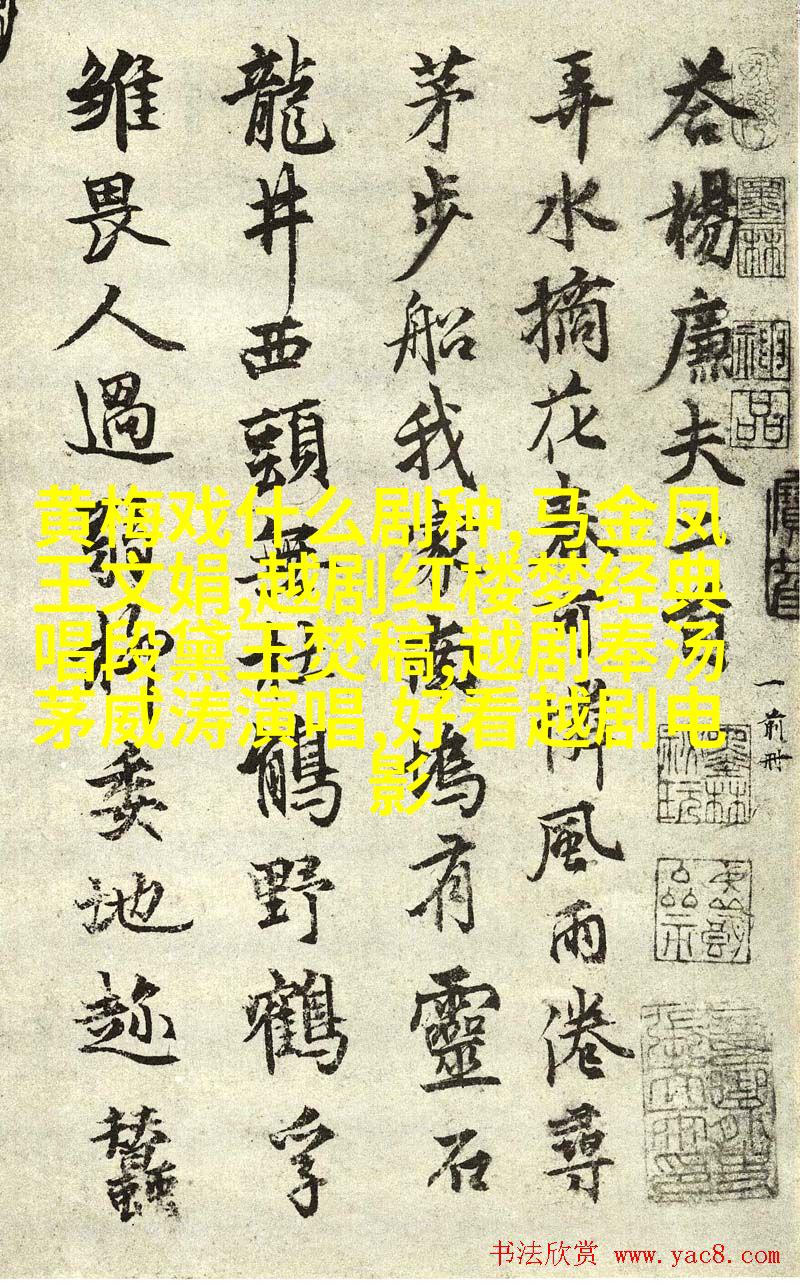 荅楊廉夫二首
一前册
弄水摘花春可風雨倦尋
茅步船我家南塢有靈石
龍井西頭無杜鵑野鶴孚
雛畏人過柳委地趂蠶
黄梅戏什么剧种,马金凤
王文娟,越剧红楼梦经典
唱段黛玉焚稿,越剧奉汤
茅威涛演唱,好看越剧电
影
书法欣赏 www.yac8.com